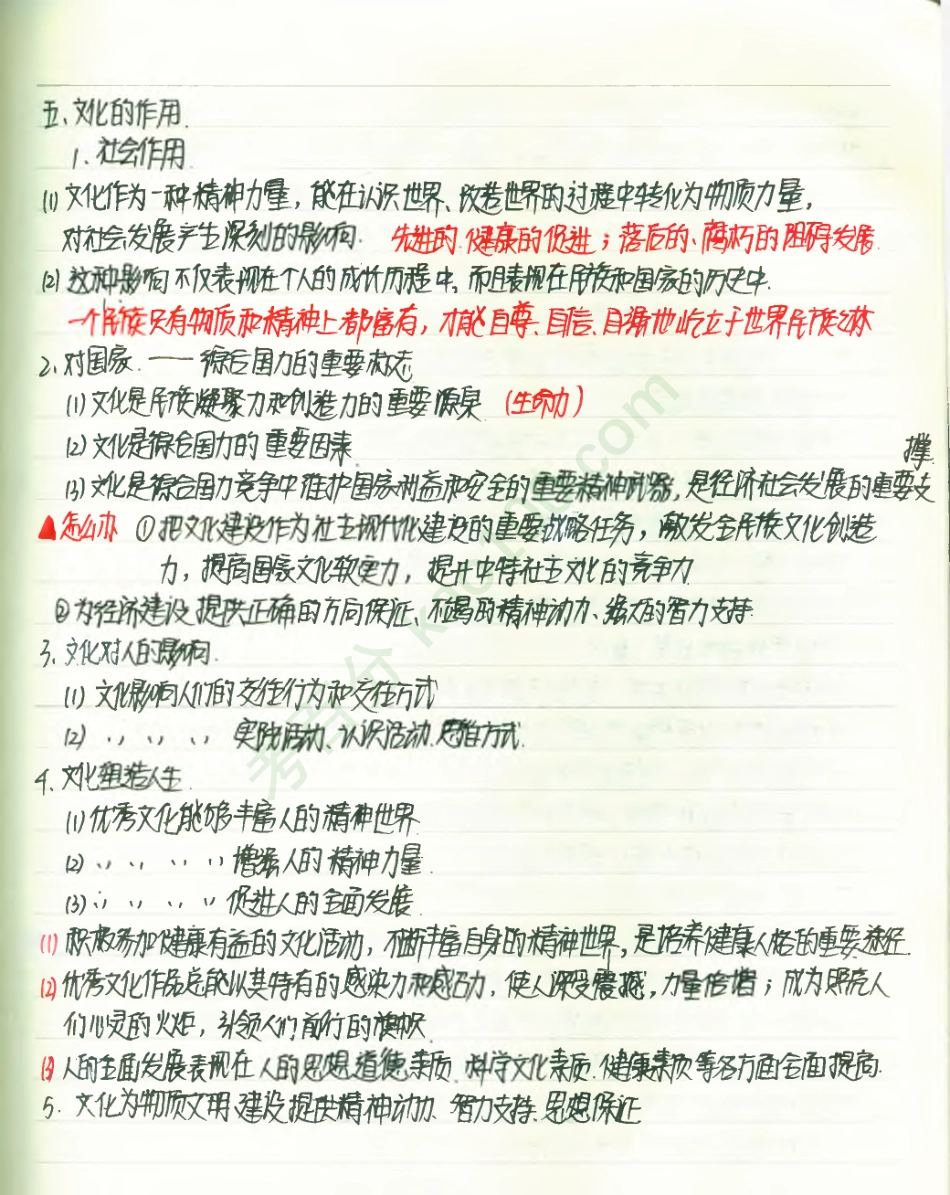 五、文化的作用.
1. 社会作用.
(1) 文化作为一种精神力量，能在认识世界、改造世界的过程中转化为物质力量，
对社会发展产生深刻的影响. 先进的.健康的促进；落后的、腐朽的阻碍发展.
(2) 这种影响不仅表现在个人的成长历程中，而且表现在民族和国家的历史中.
一个民族只有物质和精神上都富有，才能自尊、自信、自强地屹立于世界民族之林
2. 对国家. —— 综合国力的重要标志
(1) 文化是民族凝聚力和创造力的重要源泉 (生命力)
(2) 文化是综合国力的重要因素.
(3) 文化是综合国力竞争中维护国家利益和安全的重要精神武器，是经济社会发展的重要支
撑.
▲怎么办 ①把文化建设作为社主现代化建设的重要战略任务，激发全民族文化创造
力，提高国家文化软实力，提升中特社主文化的竞争力.
②为经济建设提供正确的方向保证、不竭的精神动力、强大的智力支持.
3. 文化对人的影响.
(1) 文化影响人们的交往行为和交往方式
(2) 〃 〃 〃 实践活动、认识活动.思维方式.
4. 文化塑造人生.
(1) 优秀文化能够丰富人的精神世界.
(2) 〃 〃 〃 〃 增强人的精神力量.
(3) 〃 〃 〃 〃 促进人的全面发展.
(1) 积极参加健康有益的文化活动，不断丰富自身的精神世界，是培养健康人格的重要途径.
(2) 优秀文化作品总能以其特有的感染力和感召力，使人深受震撼，力量倍增；成为照亮人
们心灵的火炬，引领人们前行的旗帜.
(3) 人的全面发展表现在人的思想道德素质.科学文化素质.健康素质等各方面全面提高.
5. 文化为物质文明建设提供精神动力.智力支持.思想保证.
考百分 kao100.com